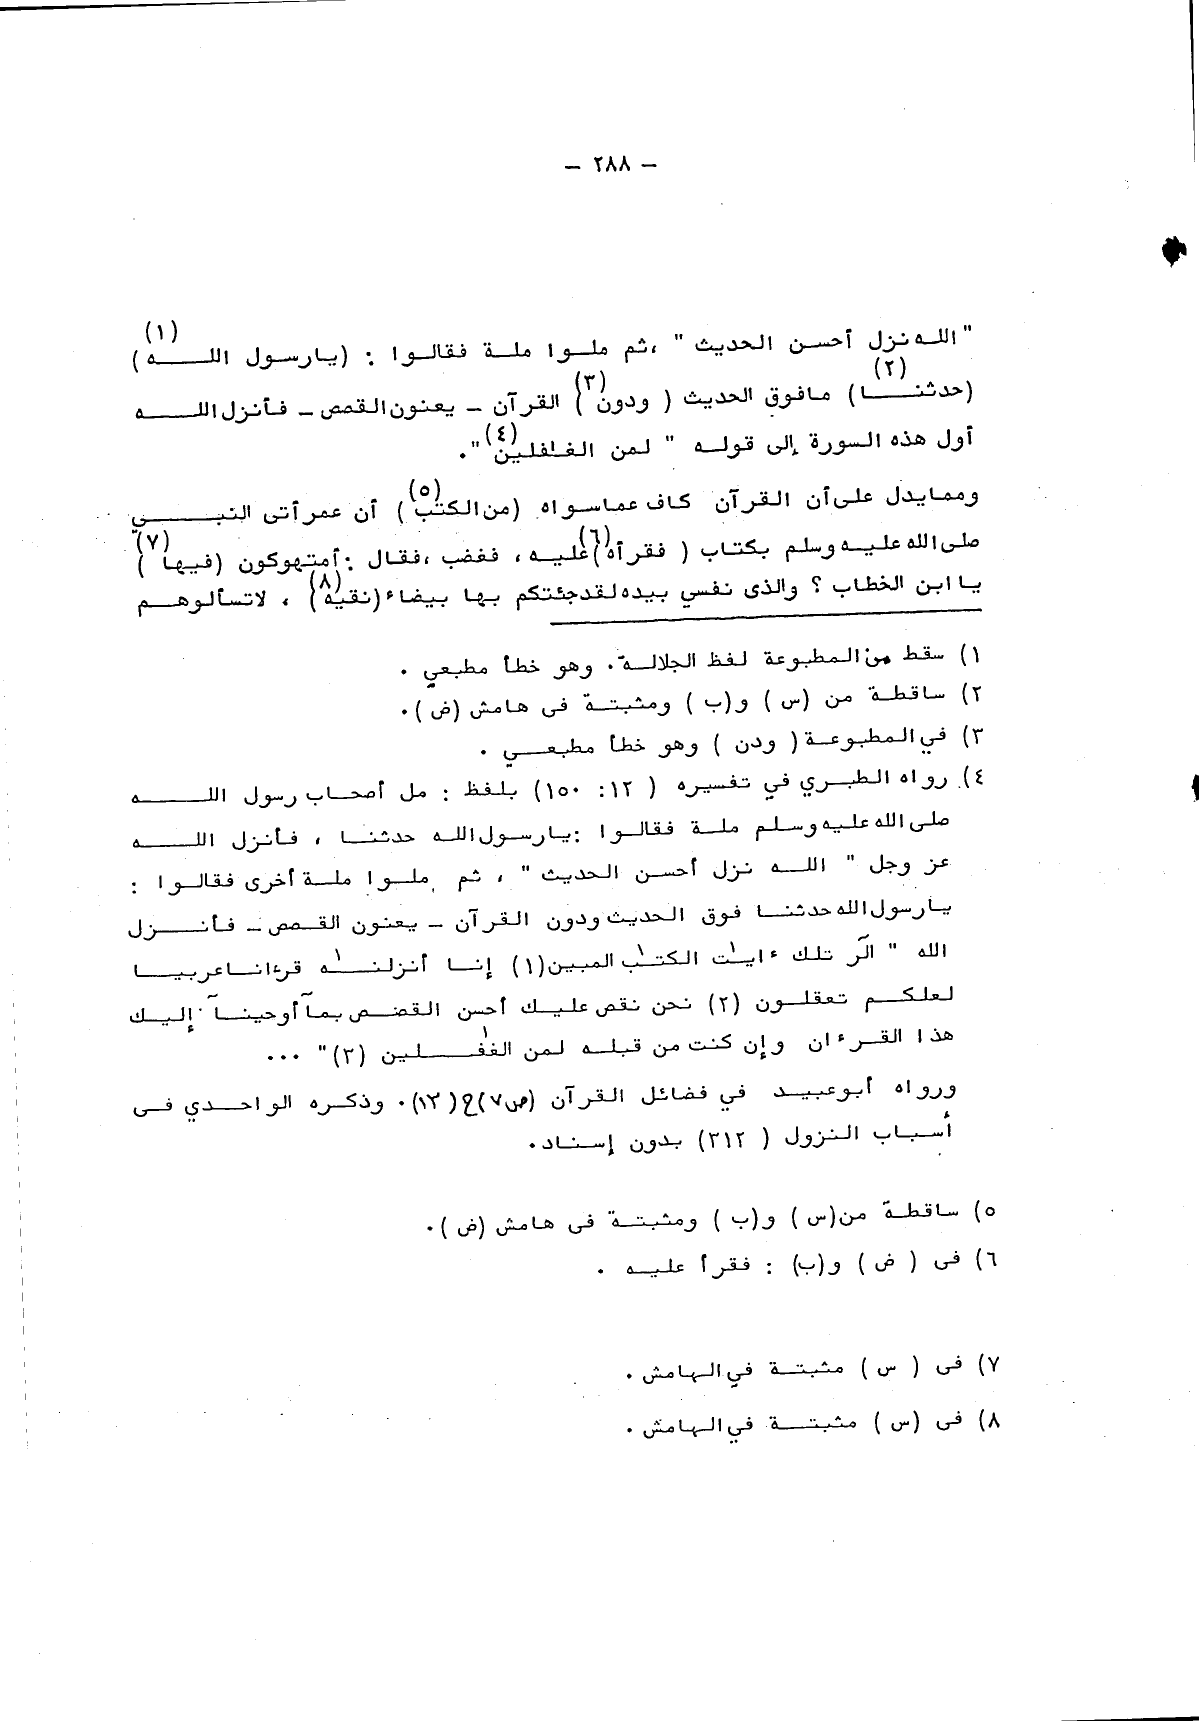 — ٢٨٨ —
" الله نزل أحسن الحديث " ،ثم ملوا ملة فقالوا : (يارسول الله)(١)
(حدثنا)(٢) مافوق الحديث ( ودون)(٣) القرآن – يعنون القصص – فأنزل الله
أول هذه السورة إلى قوله " لمن الغافلين"(٤).
ومما يدل على أن القرآن كاف عما سواه (من الكتب)(٥) أن عمر أتى النبي
صلى الله عليه وسلم بكتاب ( فقرأه)(٦) عليه ، فغضب ،فقال :أمتهوكون (فيها)(٧)
يا ابن الخطاب ؟ والذى نفسي بيده لقد جئتكم بها بيضاء (نقية)(٨) ، لاتسألوهم
١) سقط من المطبوعة لفظ الجلالة. وهو خطأ مطبعي .
٢) ساقطة من (س) و(ب) ومثبتة فى هامش (ض).
٣) في المطبوعة ( ودن ) وهو خطأ مطبعي .
٤) رواه الطبري في تفسيره ( ١٢: ١٥٠) بلفظ : مل أصحاب رسول الله
صلى الله عليه وسلم ملة فقالوا :يارسول الله حدثنا ، فأنزل الله
عز وجل " الله نزل أحسن الحديث " ، ثم ملوا ملة أخرى فقالوا :
يارسول الله حدثنا فوق الحديث ودون القرآن – يعنون القصص – فأنزل
الله " الٓر تلك ءايٰت الكتٰب المبين(١) إنا أنزلنٰه قرءانا عربيا
لعلكم تعقلون (٢) نحن نقص عليك أحسن القصص بمآ أوحينآ إليك
هذا القرءان وإن كنت من قبله لمن الغٰفلين (٣)" ...
ورواه أبوعبيد في فضائل القرآن (ص٧)ع(١٢). وذكره الواحدي فى
أسباب النزول ( ٣١٢) بدون إسناد.
٥) ساقطة من(س) و(ب) ومثبتة فى هامش (ض).
٦) فى ( ض) و(ب) : فقرأ عليه .
٧) فى ( س) مثبتة في الهامش .
٨) فى (س) مثبتة في الهامش .